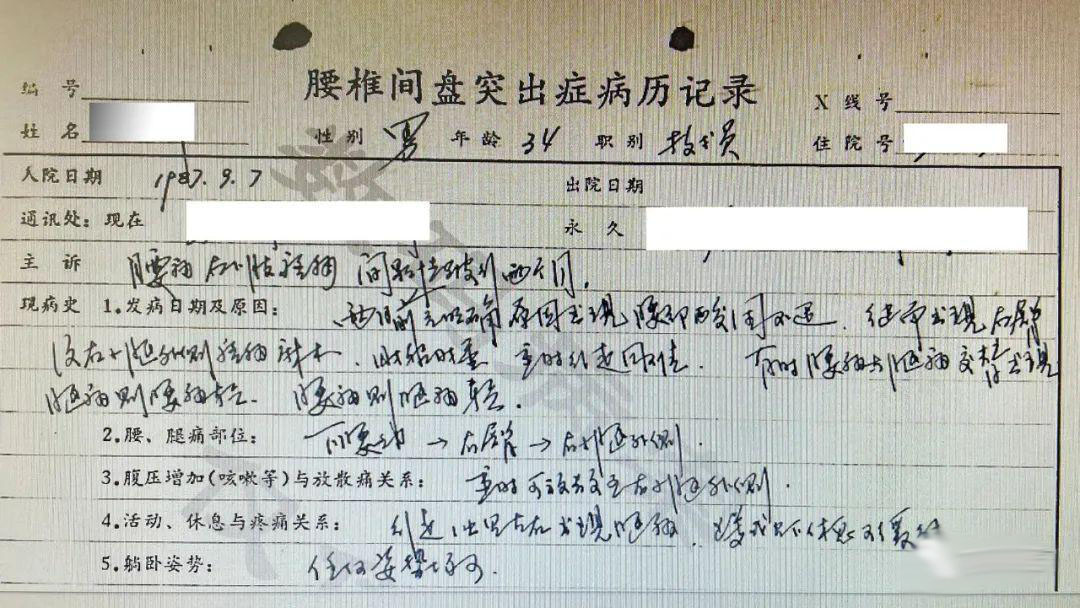 腰椎间盘突出症病历记录
编号 X线号
姓名 性别 男 年龄 34 职别 技术员 住院号
入院日期 1987.9.7 出院日期
通讯处：现在 永久
主诉 腰痛右小腿 痛 间 两个月.
现病史 1.发病日期及原因： 两月前无明确原因出现腰部酸困不适. 继而出现右臀
及右小腿外侧 痛麻木. 时轻时重 重时行走困难. 有时腰痛与腿痛交替出现
腿痛则腰痛轻. 腰痛则腿痛轻.
2.腰、腿痛部位： 下腰 → 右臀 → 右小腿外侧.
3.腹压增加(咳嗽等)与放散痛关系： 重时可放散至右小腿外侧.
4.活动、休息与疼痛关系： 行走 里左右出现腿痛. 休息可缓
5.躺卧姿势： 任何姿势均可.